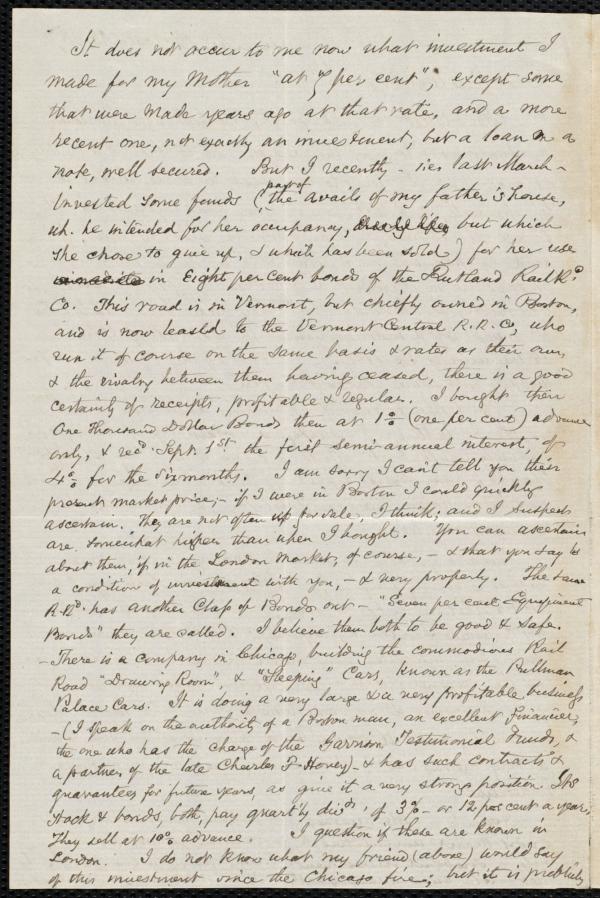 It does not occur to me now what investment I
made for my Mother "at 7 per cent", except some
that were made years ago at that rate, and a more
recent one, not exactly an investment, but a loan on a
note, well secured. But I recently - i.e. last March -
invested some funds (part of the avails of my father's house,
wh. he intended for her occupancy, but which
she chose to give up, & which has been sold) for her use
in Eight per cent bonds of the Rutland Rail Rd.
Co. This road is in Vermont, but chiefly owned in Boston,
and is now leased to the Vermont Central R.R. Co, who
run it of course on the same basis & rates as their own,
& the rivalry between them having ceased, there is a good
certainty of receipts, profitable & regular. I bought their
One Thousand Dollar Bonds then at 1% (one per cent) advance
only, & recd. Sept. 1st the first semi-annual interest, of
4% for the six months. I am sorry I can't tell you their
present market price; - if I were in Boston I could quickly
ascertain. They are not often up for sale, I think; and I suspect
are somewhat higher than when I bought. You can ascertain
about them, if in the London market, of course, - & that you say is
a condition of investment with you, - & very properly. The same
R.Rd. has another Class of Bonds out - "Seven per cent Equipment
Bonds" they are called. I believe them both to be good & safe.
- There is a company in Chicago, building the commodious Rail
Road "Drawing Room", & "Sleeping" Cars, known as the Pullman
Palace Cars. It is doing a very large & a very profitable business
- (I speak on the authority of a Boston man, an excellent Financier,
the one who has the charge of the Garrison Testimonial Funds, &
a partner of the late Charles F. Hovey) - & has such contracts &
guarantees for future years, as give it a very strong position. Its
stock & bonds, both, pay quart'ly divds. of 3% - or 12 per cent a year.
They sell at 10% advance. I question if these are known in
London. I do not know what my friend (above) would say
of this investment since the Chicago fire; but it is publicly